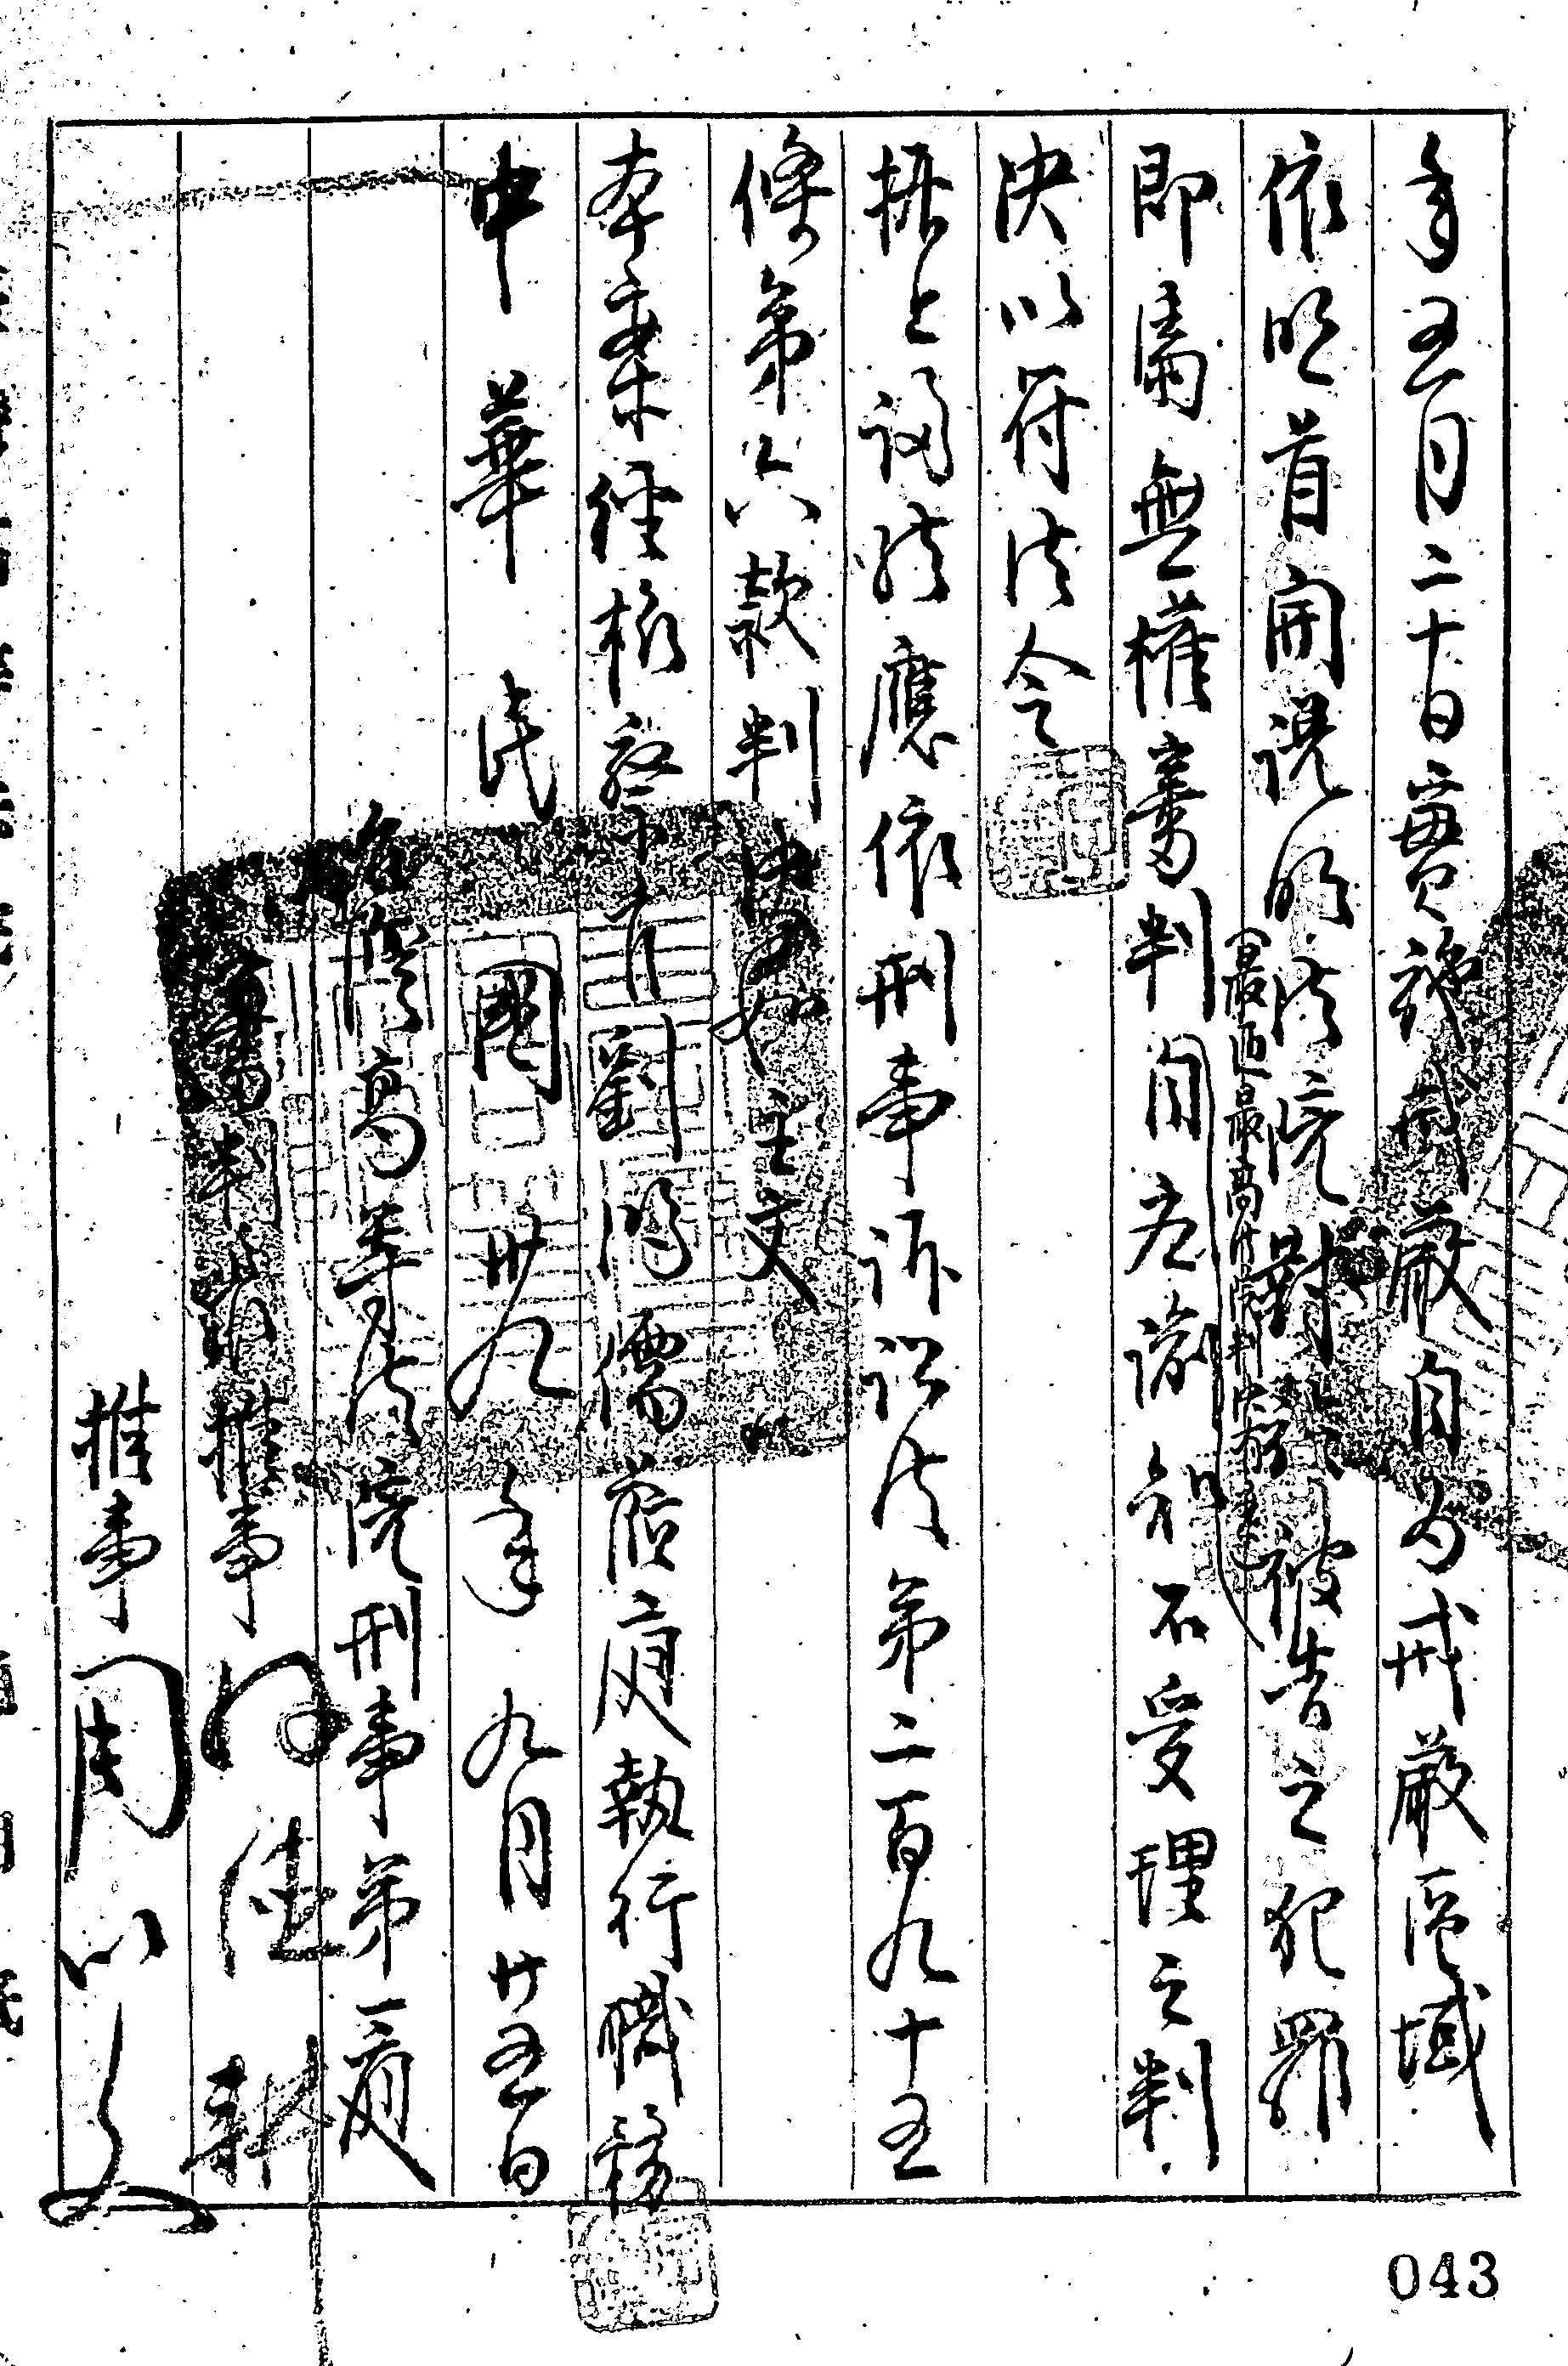 年五月二十日實施戒嚴自為戒嚴區域
依照首開說明法院對被告之犯罪
(最近最高法院判決
即屬無權審判自應諭知不受理之判
決以符法令
據上論結應依刑事訴訟法第二百九十五
條第六款判決如主文
本案經檢察官劉 儒蒞庭執行職務
中華民國卅九年九月廿五日
高等法院刑事第一庭
審判長推事
推事周
043